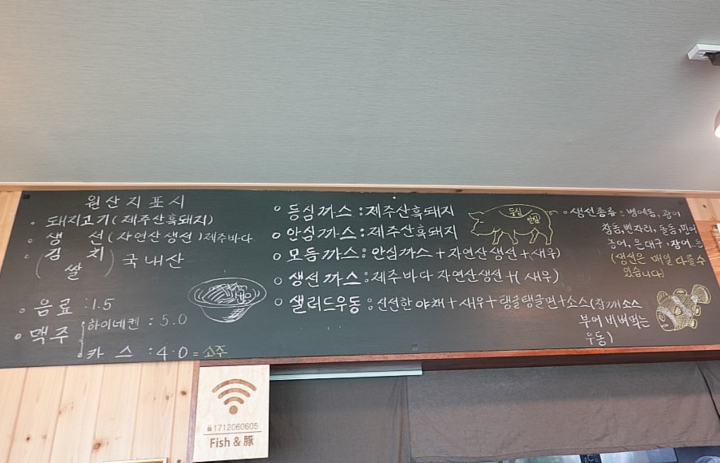 원산지표시
· 돼지고기(제주산흑돼지)
· 생 선(자연산생선)제주바다
· (김 치
쌀) 국내산
· 음료 : 1.5
· 맥주 하이네켄 : 5.0
카 스 : 4.0 = 소주
◦ 등심까스 : 제주산흑돼지
◦ 안심까스 : 제주산흑돼지
◦ 모듬까스 : 안심까스 + 자연산생선 + 새우
◦ 생선까스 : 제주바다 자연산생선 + (새우)
◦ 샐러드우동 : 신선한 야채 + 새우 + 탱글탱글면 + 소스(참깨소스
부어 비벼먹는
우동)
등심
안심
◦ 생선종류 : 벵에돔, 광어
참돔, 벤자리, 돌돔, 민어
(생선은 매일 다를수
있습니다)
1712060605
Fish & 豚